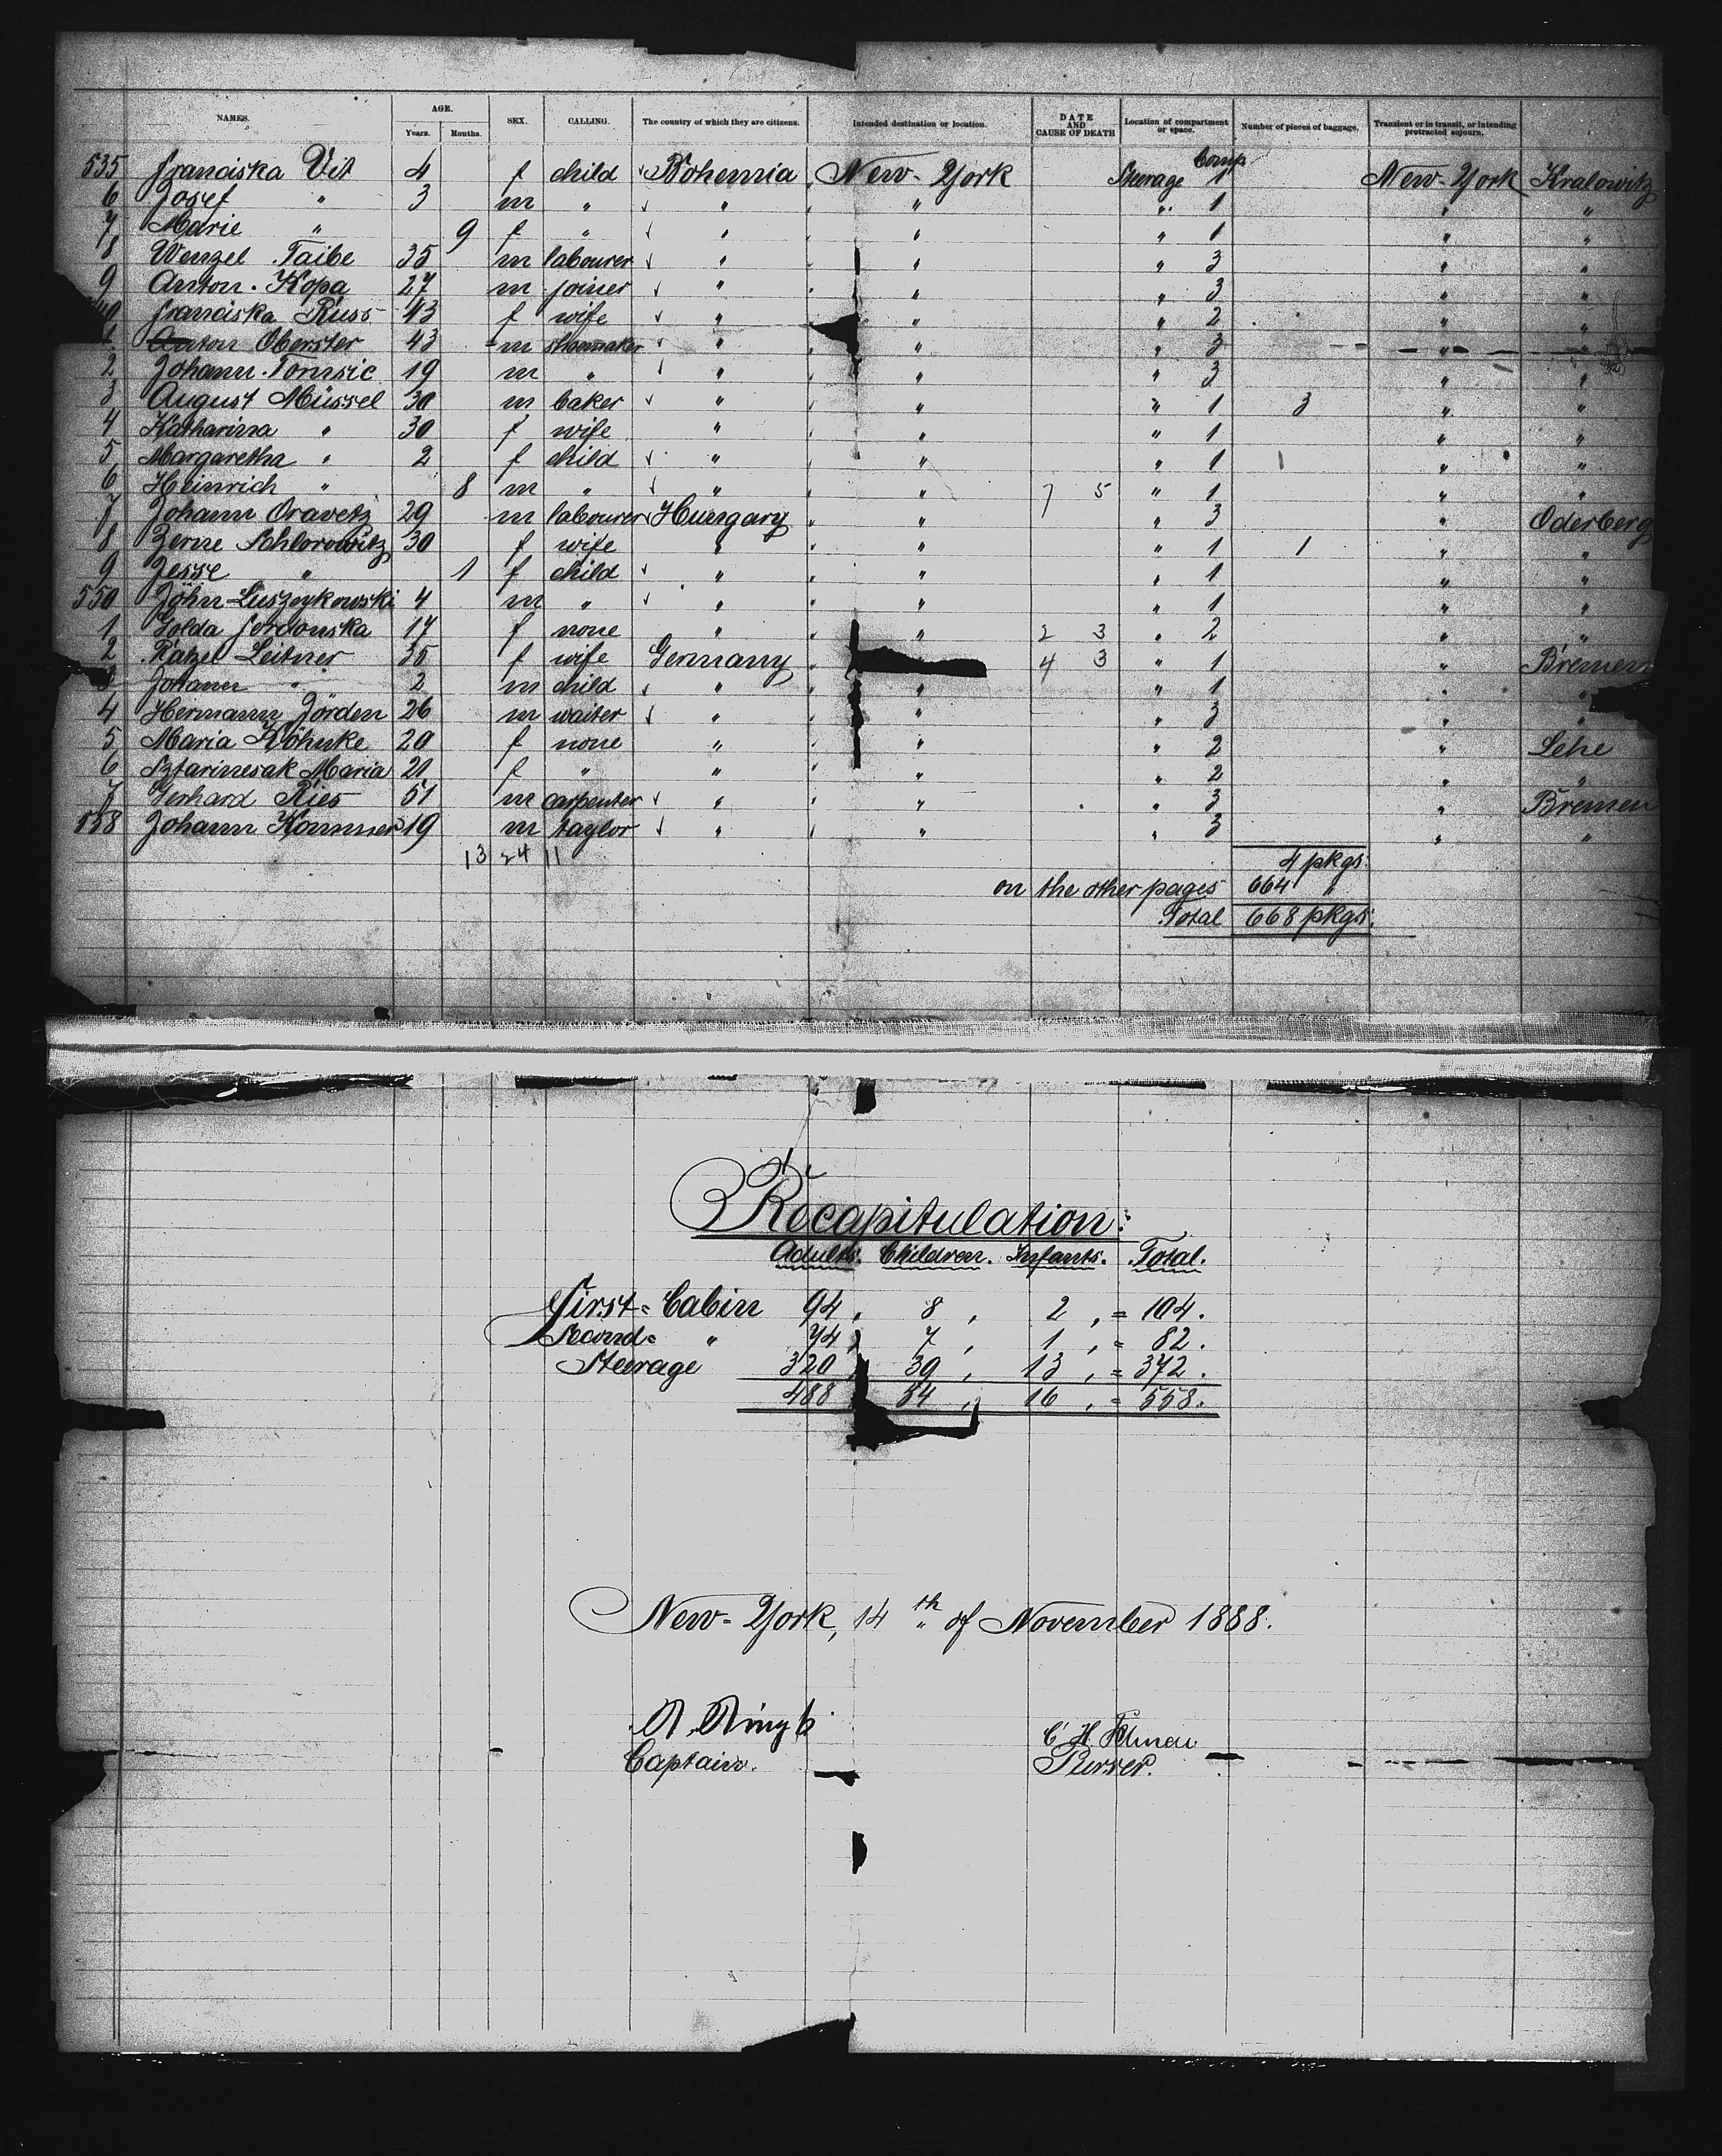 NAMES. AGE. Years. Months. SEX. CALLING. The country of which they are citizens. Intended destination or location. DATE AND CAUSE OF DEATH Location of compartment or space. Number of pieces of baggage. Transient or in transit, or intending protracted sojourn.
535 Franciska Vit 4 f child Bohemia New-York Steerage Comp 1 New-York Kralowitz
6 Josef " 3 m " " " " 1 " "
7 Marie " 9 f " " " " 1 " "
8 Wenzel Taibe 35 m labourer " " " 3 " "
9 Anton Kopa 27 m joiner " " " 3 " "
Franciska Russ 43 f wife " " " 2 " "
Anton Oberster 43 m shoemaker " " " 3 " "
2 Johann Tomsic 19 m " " " " 3 " "
3 August Müssel 30 m baker " " " 1 3 " "
4 Katharina " 30 f wife " " " 1 " "
5 Margaretha " 2 f child " " " 1 " "
6 Heinrich " 8 m " " " 7 5 " 1 " "
7 Johann Oravetz 29 m labourer Hungary " " 3 " Oderberg
8 Zerne Schlorowitz 30 f wife " " " 1 1 " "
9 Jesse " 1 f child " " " 1 " "
550 John Luszeykowski 4 m " " " " 1 " "
1 Golda Jordonska 17 f none " " 2 3 " 2 " "
2 Ratzel Leitner 35 f wife Germany 4 3 " 1 " Bremen
3 Johann " 2 m child " " " 1 " "
4 Hermann Jörden 26 m waiter " " " 3 " "
5 Maria Köhnke 20 f none " " " 2 " Lehe
6 Sztarinesak Maria 21 f " " " " 2 " "
7 Gerhard Ries 51 m carpenter " " " 3 " Bremen
558 Johann Kommer 19 m taylor " " " 3 " "
13 24 11
4 pkgs.
on the other pages 664 "
Total 668 pkgs.
Recapitulation:
Adults. Children. Infants. Total.
First-Cabin 94, 8, 2, = 104.
Second- " 74, 7, 1, = 82.
Steerage 320, 39, 13, = 372.
488, 54, 16, = 558.
New-York, 14th of November 1888.
Captain.
Purser.